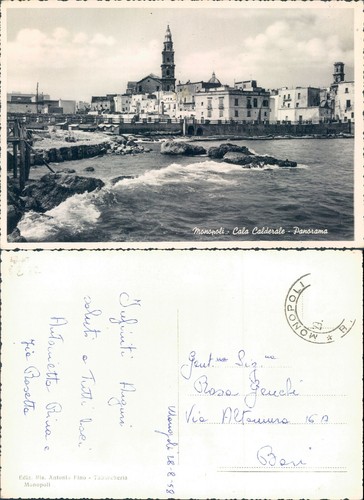 Monopoli - Cala Calderale - Panorama
MONOPOLI
Infiniti Auguri
saluti a Tutti baci
Antonietta Pina e
Zia Rosetta
Monopoli 28-8-48
Gent.ma Sig.na
Rosa Genchi
Via Altamura 16 A
Bari
Ediz. Vis. Antonio Pino - Tabaccheria
Monopoli